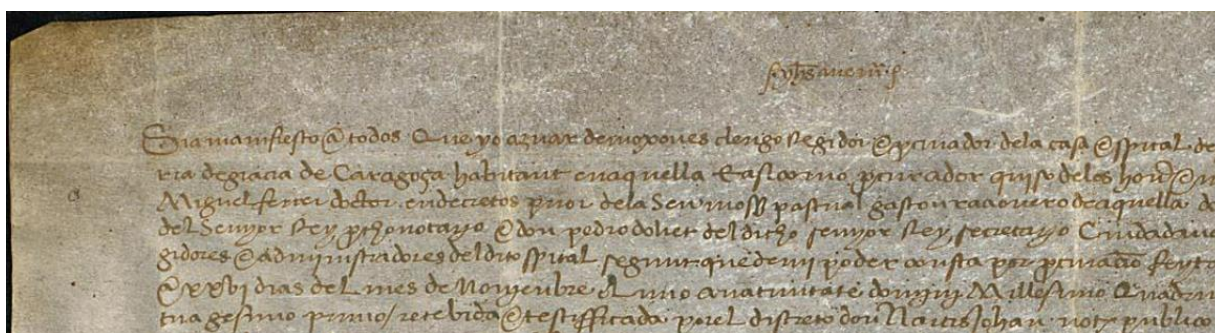 Sia manifiesto a todos Que yo aznar de moxoues clerigo Regidor e procurador dela casa e spital de
ria de gracia de Caragoça habitant en aquella Et assi como procurador quiso delos hon
Miguel ferrer doctor en decretos prior dela Seu moss pascual gaston racionero de aquella
del Senyor Rey prothonotario e don pedro doliet del dicho senyor Rey secretario Ciudadan
gidores e administradores del dito spital segunt que de mi poder consta por procuracion feyta
XXVI dias del mes de Nouiembre anno a natiuitate domini Millesimo Quadrin
tuagesimo primo recebida e testifficada por el discreto don Narcis Johan not publico